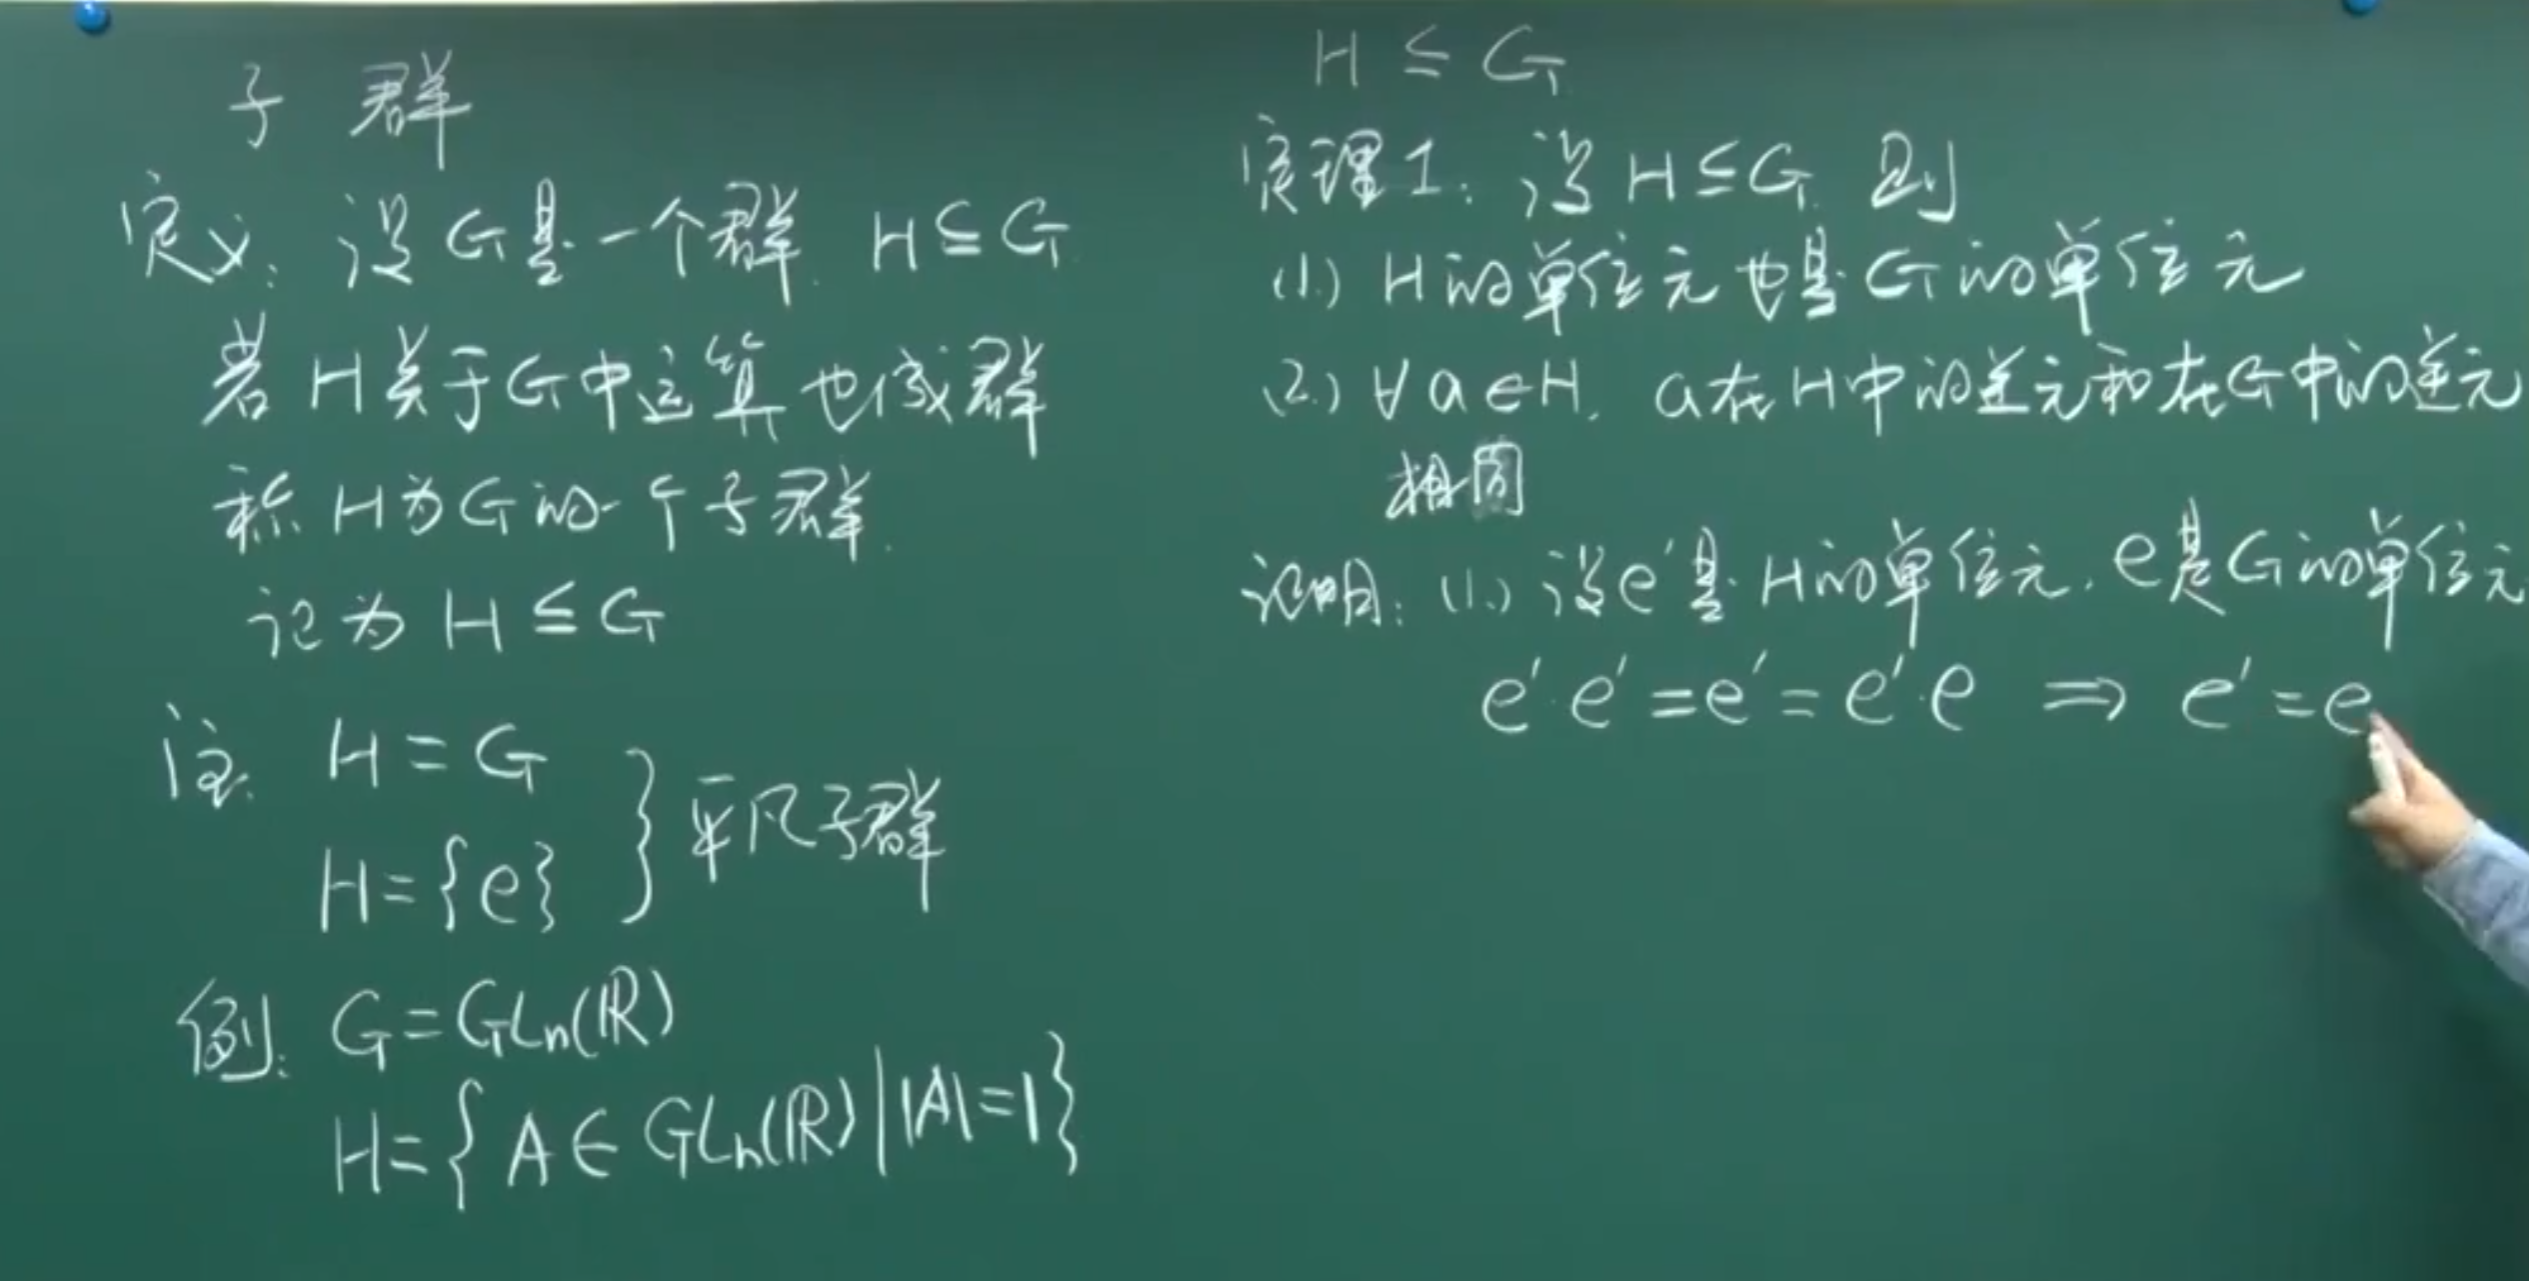 子群
定义: 设G是一个群. H⊆G
若H关于G中运算也成群
称H为G的一个子群.
记为 H≤G
注: H=G
H={e} } 平凡子群
例: G=GLn(ℝ)
H={A∈GLn(ℝ)||A|=1}
H≤G
定理1: 设H≤G. 则
(1.) H的单位元也是G的单位元
(2.) ∀a∈H. a在H中的逆元和在G中的逆元
相同
证明: (1.) 设e'是H的单位元. e是G的单位元
e'·e'=e'=e'·e ⇒ e'=e